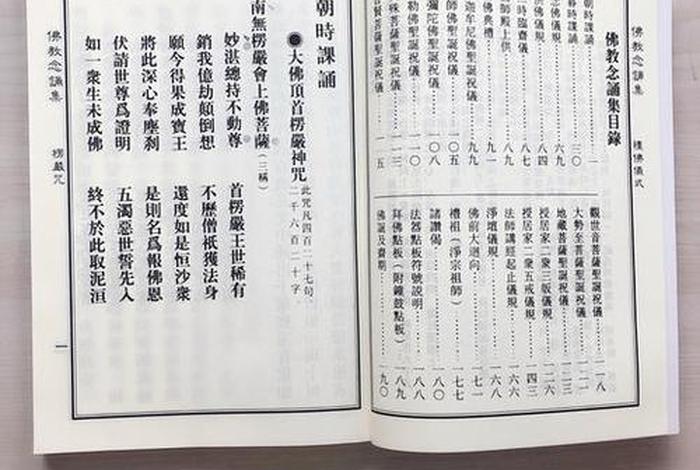 佛教念誦集
禮佛儀式
佛教念誦集目錄
朝時課誦
一
暮時課誦
三〇
念佛儀規
六九
八四
八七
師殿上供
八九
佛典禮
九一
迦牟尼佛聖誕祝儀
九九
師佛聖誕祝儀
一〇五
彌陀佛聖誕祝儀
一〇八
勒佛聖誕祝儀
一一〇
殊菩薩聖誕祝儀
一一三
賢菩薩聖誕祝儀
一一五
觀世音菩薩聖誕祝儀
一一八
大勢至菩薩聖誕祝儀
地藏菩薩聖誕祝儀
授居家二眾三皈儀規
一二六
授居家二眾五戒儀規
法師講經起止儀規
一六六
淨壇儀規
一六八
佛前大迴向
一七一
禮祖（淨宗祖師）
一七七
諸讚偈
一八〇
法器點板符號說明
一八八
拜佛點板（附鐘鼓點板）
一八九
佛誕及齋期
一九〇
朝時課誦
●大佛頂首楞嚴神咒
此咒凡四百二十七句
二千六百二十字
南無楞嚴會上佛菩薩（三稱）
妙湛總持不動尊　首楞嚴王世稀有
銷我億劫顛倒想　不歷僧祇獲法身
願今得果成寶王　還度如是恒沙眾
將此深心奉塵剎　是則名爲報佛恩
伏請世尊爲證明　五濁惡世誓先入
如一衆生未成佛　終不於此取泥洹
佛教念誦集
楞嚴咒
一